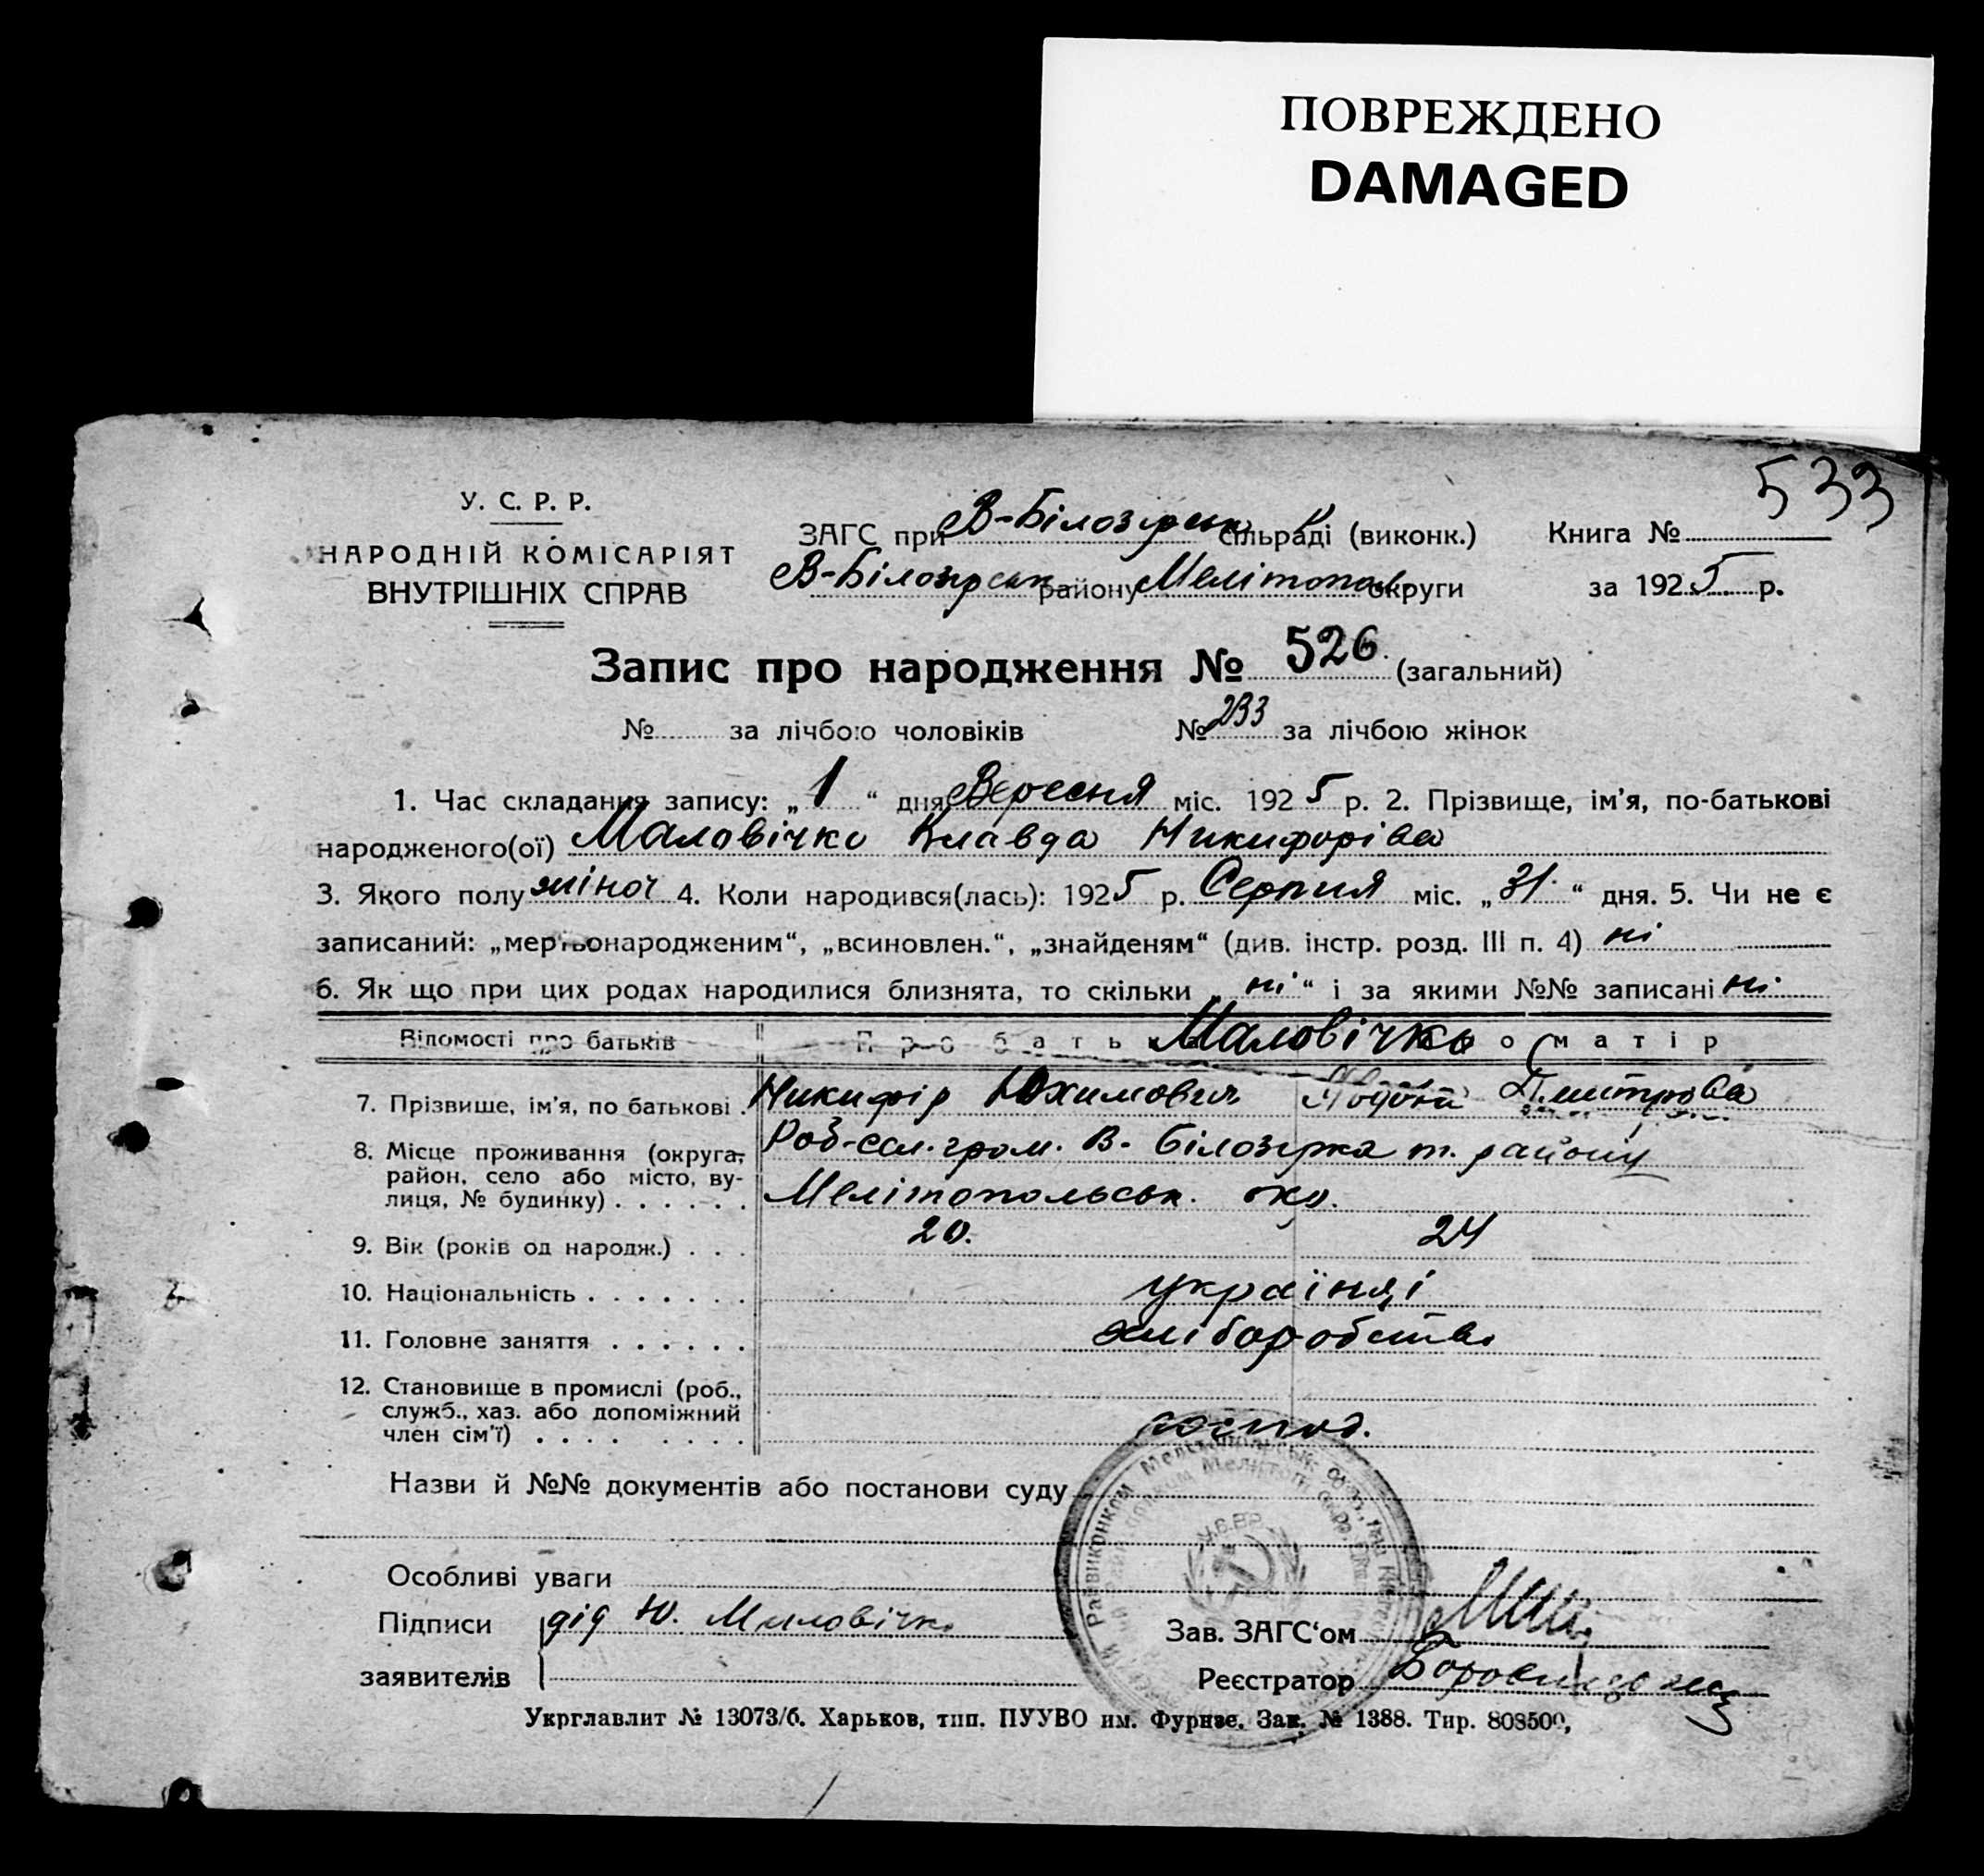 ПОВРЕЖДЕНО
DAMAGED
533
У. С. Р. Р.
НАРОДНІЙ КОМІСАРІЯТ
ВНУТРІШНІХ СПРАВ
ЗАГС при В-Білозірськ сільраді (виконк.)
В-Білозірськ району Мелітопол округи
Книга №
за 1925 р.
Запис про народження № 526 (загальний)
№ за лічбою чоловіків № 233 за лічбою жінок
1. Час складання запису: „1“ дня Вересня міс. 1925 р. 2. Прізвище, ім’я, по-батькові
народженого(ої) Маловічко Клавда Никифоріва
3. Якого полу жіноч 4. Коли народився(лась): 1925 р. Серпня міс. „31“ дня. 5. Чи не є
записаний: „мертвонародженим“, „всиновлен.“, „знайденям“ (див. інстр. розд. III п. 4) ні
6. Як що при цих родах народилися близнята, то скільки „ні“ і за якими №№ записані ні
Відомості про батьків Про бать матір
Маловічко
7. Прізвише, ім’я, по батькові Никифір Юхимович Дмитрова
8. Місце проживання (округа, район, село або місто, вулиця, № будинку) Роб-сел. гром. В-Білозірка т. району
Мелітопольськ. окр.
9. Вік (років од народж.) 20. 24
10. Національність українці
11. Головне заняття хліборобство
12. Становище в промислі (роб., служб., хаз. або допоміжний член сім’ї) господ.
Назви й №№ документів або постанови суду
Особливі уваги
Підписи заявителів дід Ю. Маловічко
Зав. ЗАГС‘ом
Реєстратор
У.С.Р.Р.
Укрглавлит № 13073/б. Харьков, тип. ПУУВО им. Фурнзе. Зак. № 1388. Тир. 808500,